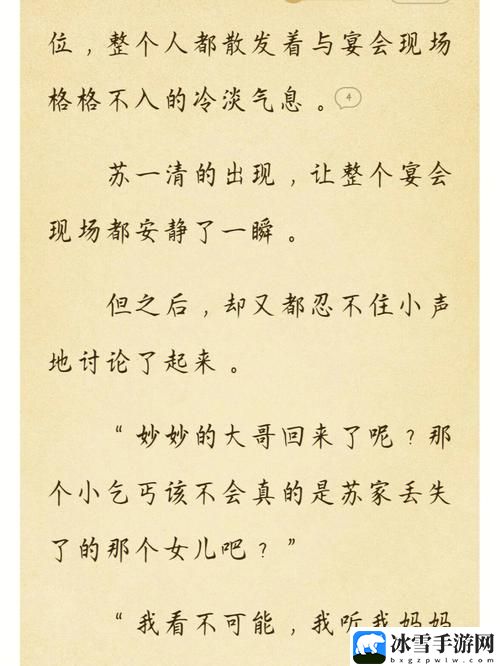 位，整个人都散发着与宴会现场
格格不入的冷淡气息。4
苏一清的出现，让整个宴会
现场都安静了一瞬。
但之后，却又都忍不住小声
地讨论了起来。
“妙妙的大哥回来了呢？那
个小乞丐该不会真的是苏家丢失
了的那个女儿吧？”
“我看不可能，我听我妈妈
冰雪手游网
bxgzpwlw.com